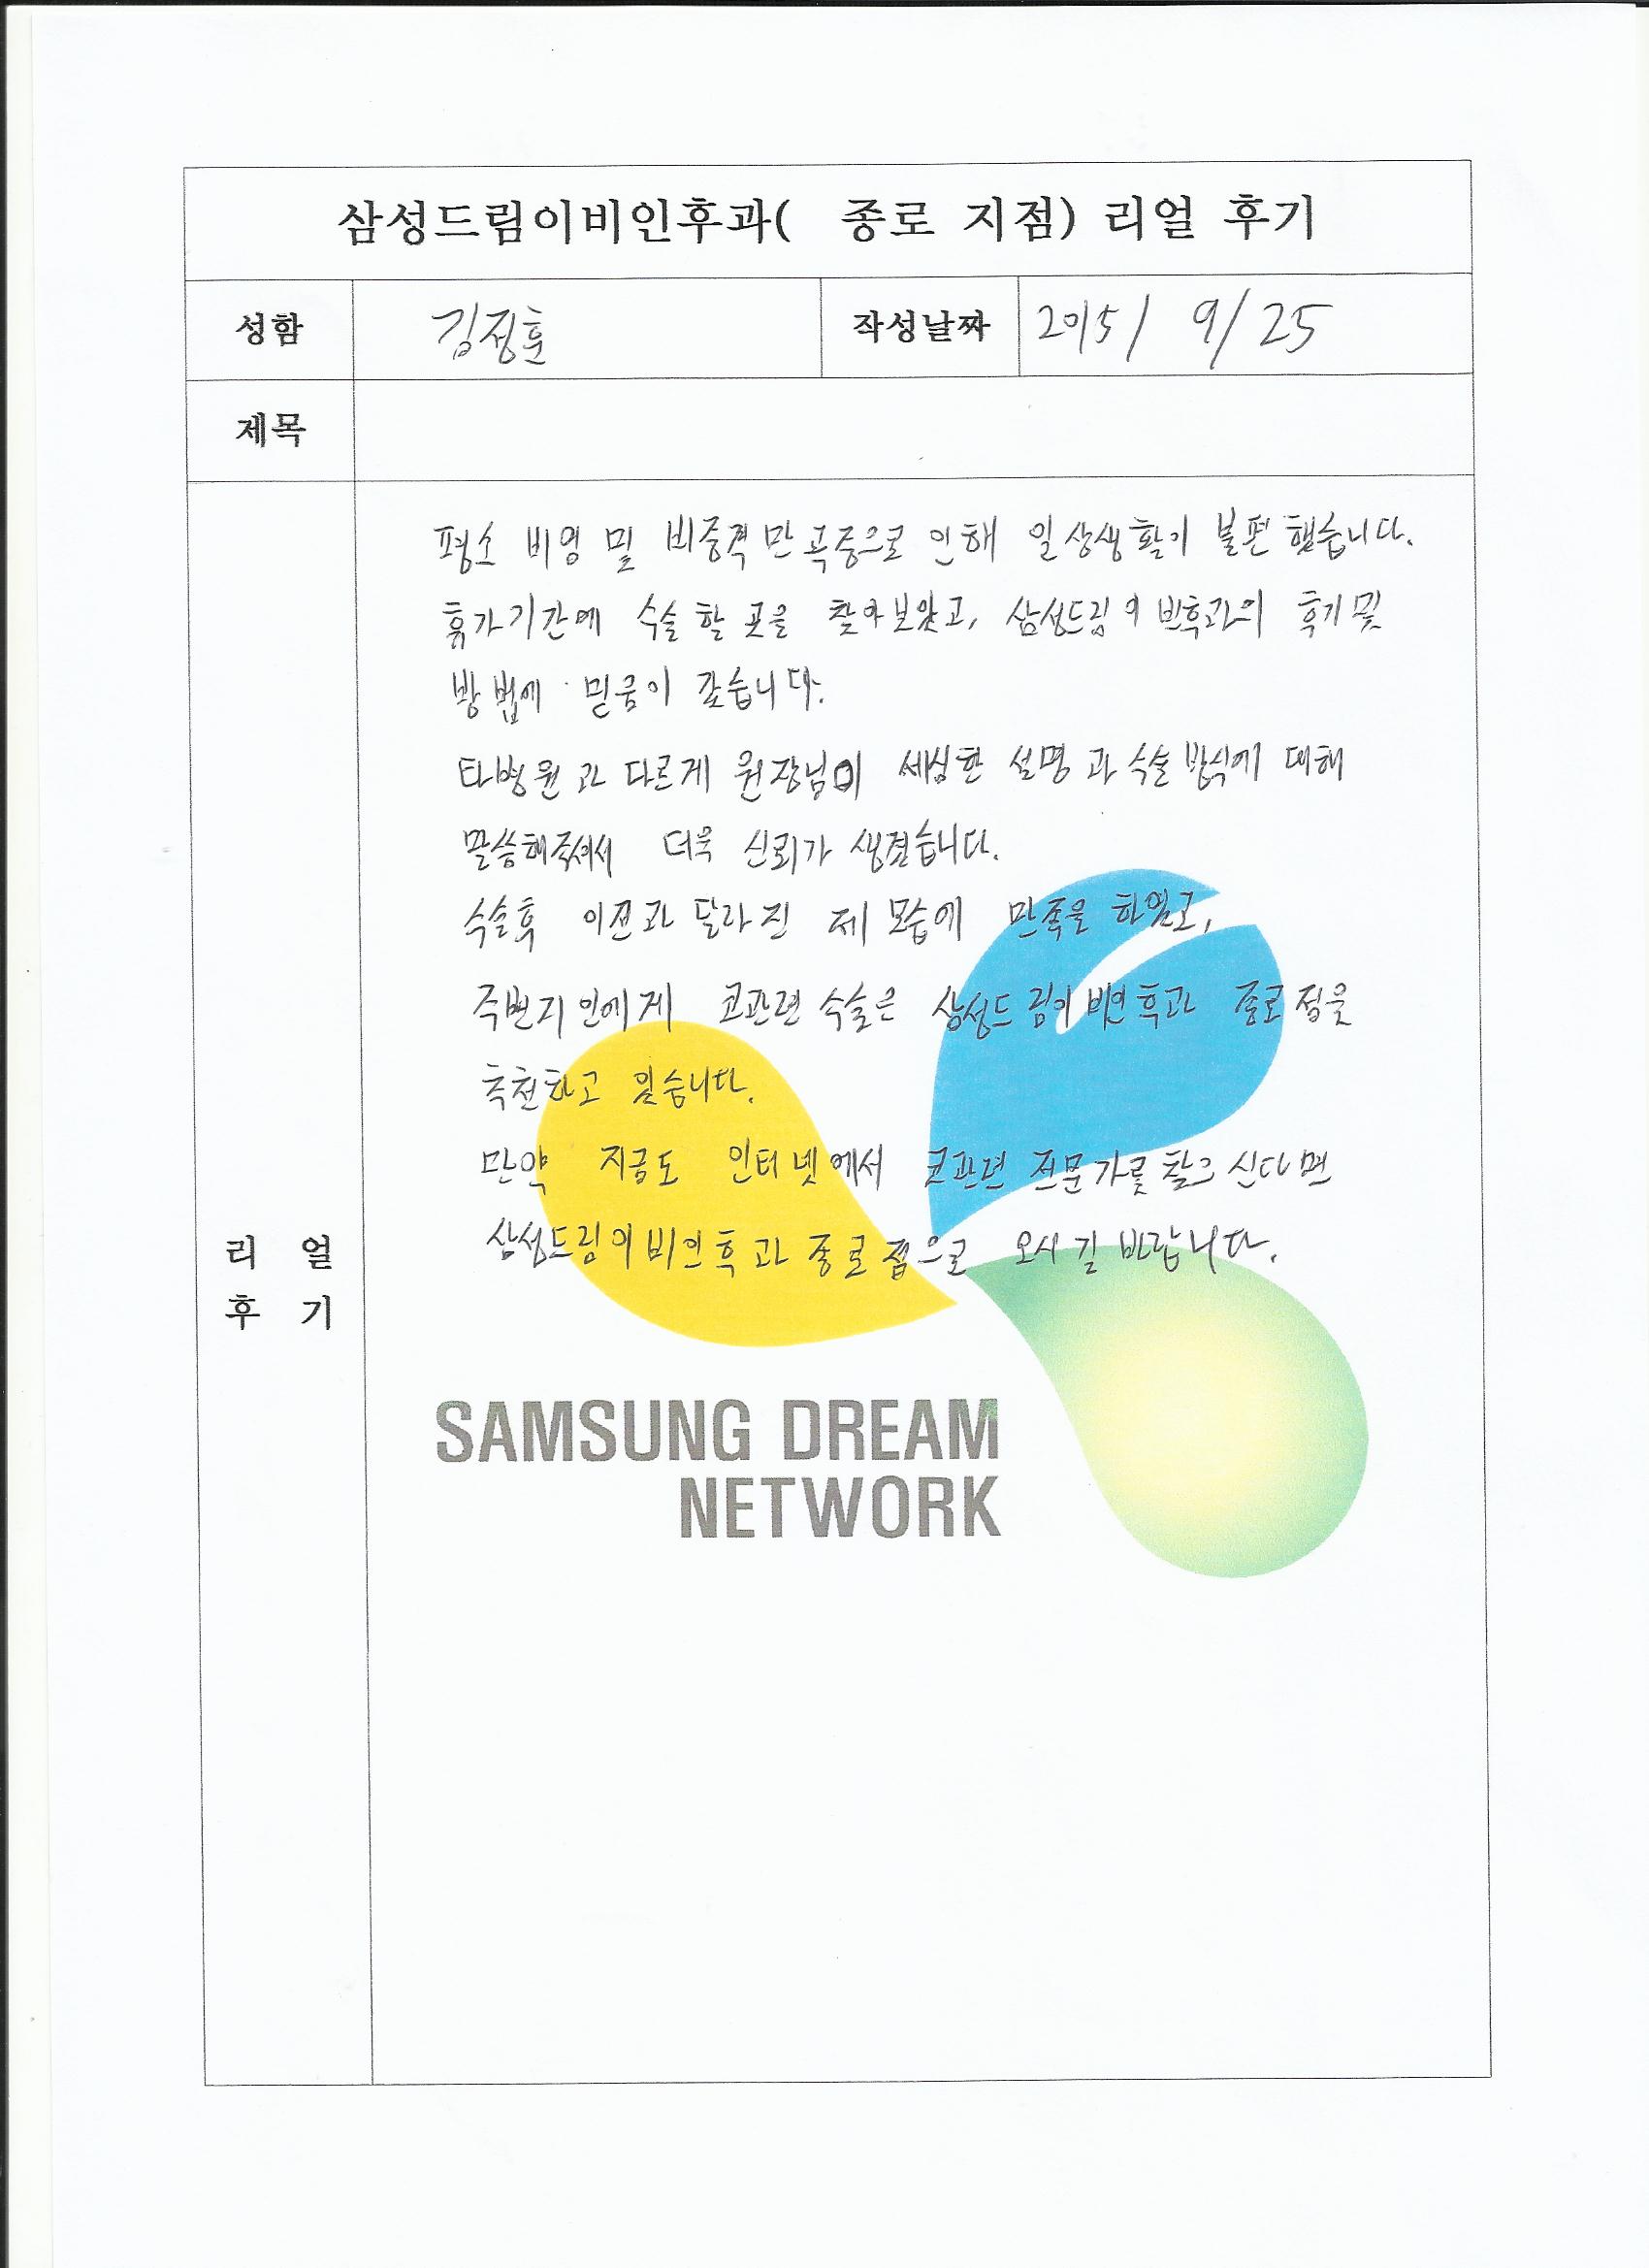 삼성드림이비인후과( 종로 지점) 리얼 후기
성함 김정훈 작성날짜 2015/ 9/25
제목
평소 비염 및 비중격만곡증으로 인해 일상생활이 불편했습니다.
휴가기간에 수술할 곳을 찾아보았고, 삼성드림이빈후과의 후기 및
방법에 믿음이 갔습니다.
타병원과 다르게 원장님이 세심한 설명과 수술방식에 대해
말씀해주셔서 더욱 신뢰가 생겼습니다.
수술후 이전과 달라진 제 모습에 만족을 하였고,
주변지인에게 코관련 수술은 삼성드림이비인후과 종로점을
추천하고 있습니다.
만약 지금도 인터넷에서 코관련 전문가를 찾으신다면
삼성드림이비인후과 종로점으로 오시길 바랍니다.
리 얼
후 기
SAMSUNG DREAM
NETWORK